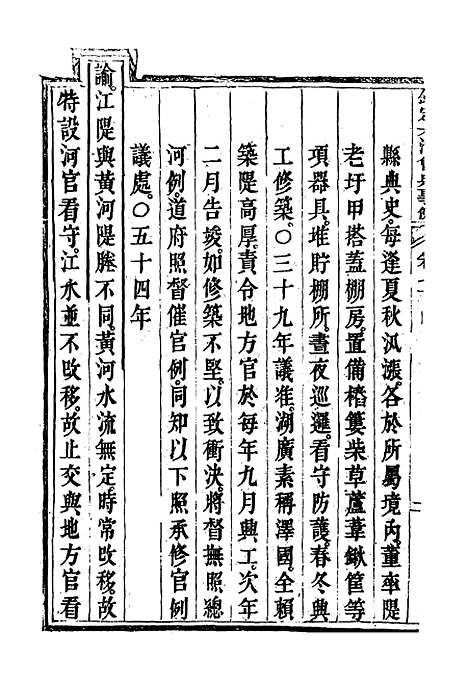 縣典史。每逢夏秋汛漲。各於所屬境內。董率隄
老圩甲搭蓋棚房。置備樁簍柴草蘆葦鍬筐等
項器具。堆貯棚所。晝夜巡邏。看守防護。春冬興
工修築。○三十九年議准。湖廣素稱澤國。全賴
築隄高厚。責令地方官於每年九月興工。次年
二月告竣。如修築不堅。以致衝決。將督撫照總
河例。道府照督催官例。同知以下照承修官例
議處。○五十四年
諭。江隄與黃河隄塍不同。黃河水流無定。時常改移。故
特設河官看守。江水並不改移。故止交與地方官看